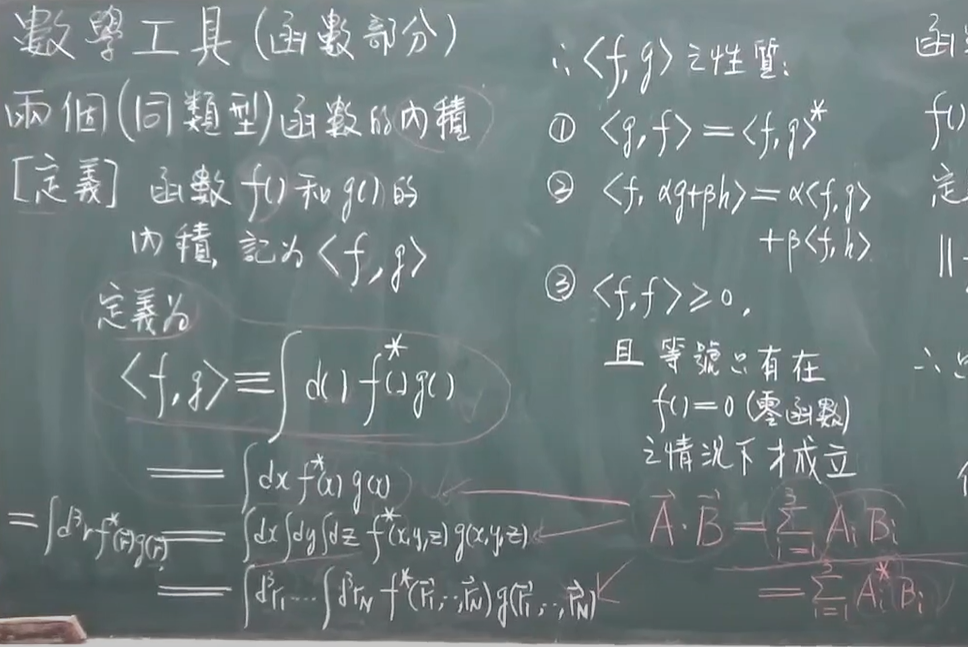 數學工具(函數部分)
兩個(同類型)函數的內積
[定義] 函數 f() 和 g() 的
內積, 記為 <f, g>
定義為
<f, g> ≡ ∫ d() f*() g()
= ∫ dx f*(x) g(x)
= ∫ d³r f*(r⃗) g(r⃗) = ∫dx ∫dy ∫dz f*(x,y,z) g(x,y,z)
= ∫ d³r₁ ⋯ ∫ d³r_N f*(r⃗₁, ⋯, r⃗_N) g(r⃗₁, ⋯, r⃗_N)
∴ <f, g> 之性質:
① <g, f> = <f, g>*
② <f, αg+βh> = α<f, g>
+ β<f, h>
③ <f, f> ≥ 0,
且等號只有在
f() = 0 (零函數)
之情況下才成立
A⃗ · B⃗ = Σ_{i=1}^{3} A_i B_i
= Σ_{i=1}^{3} A_i* B_i
f()
定